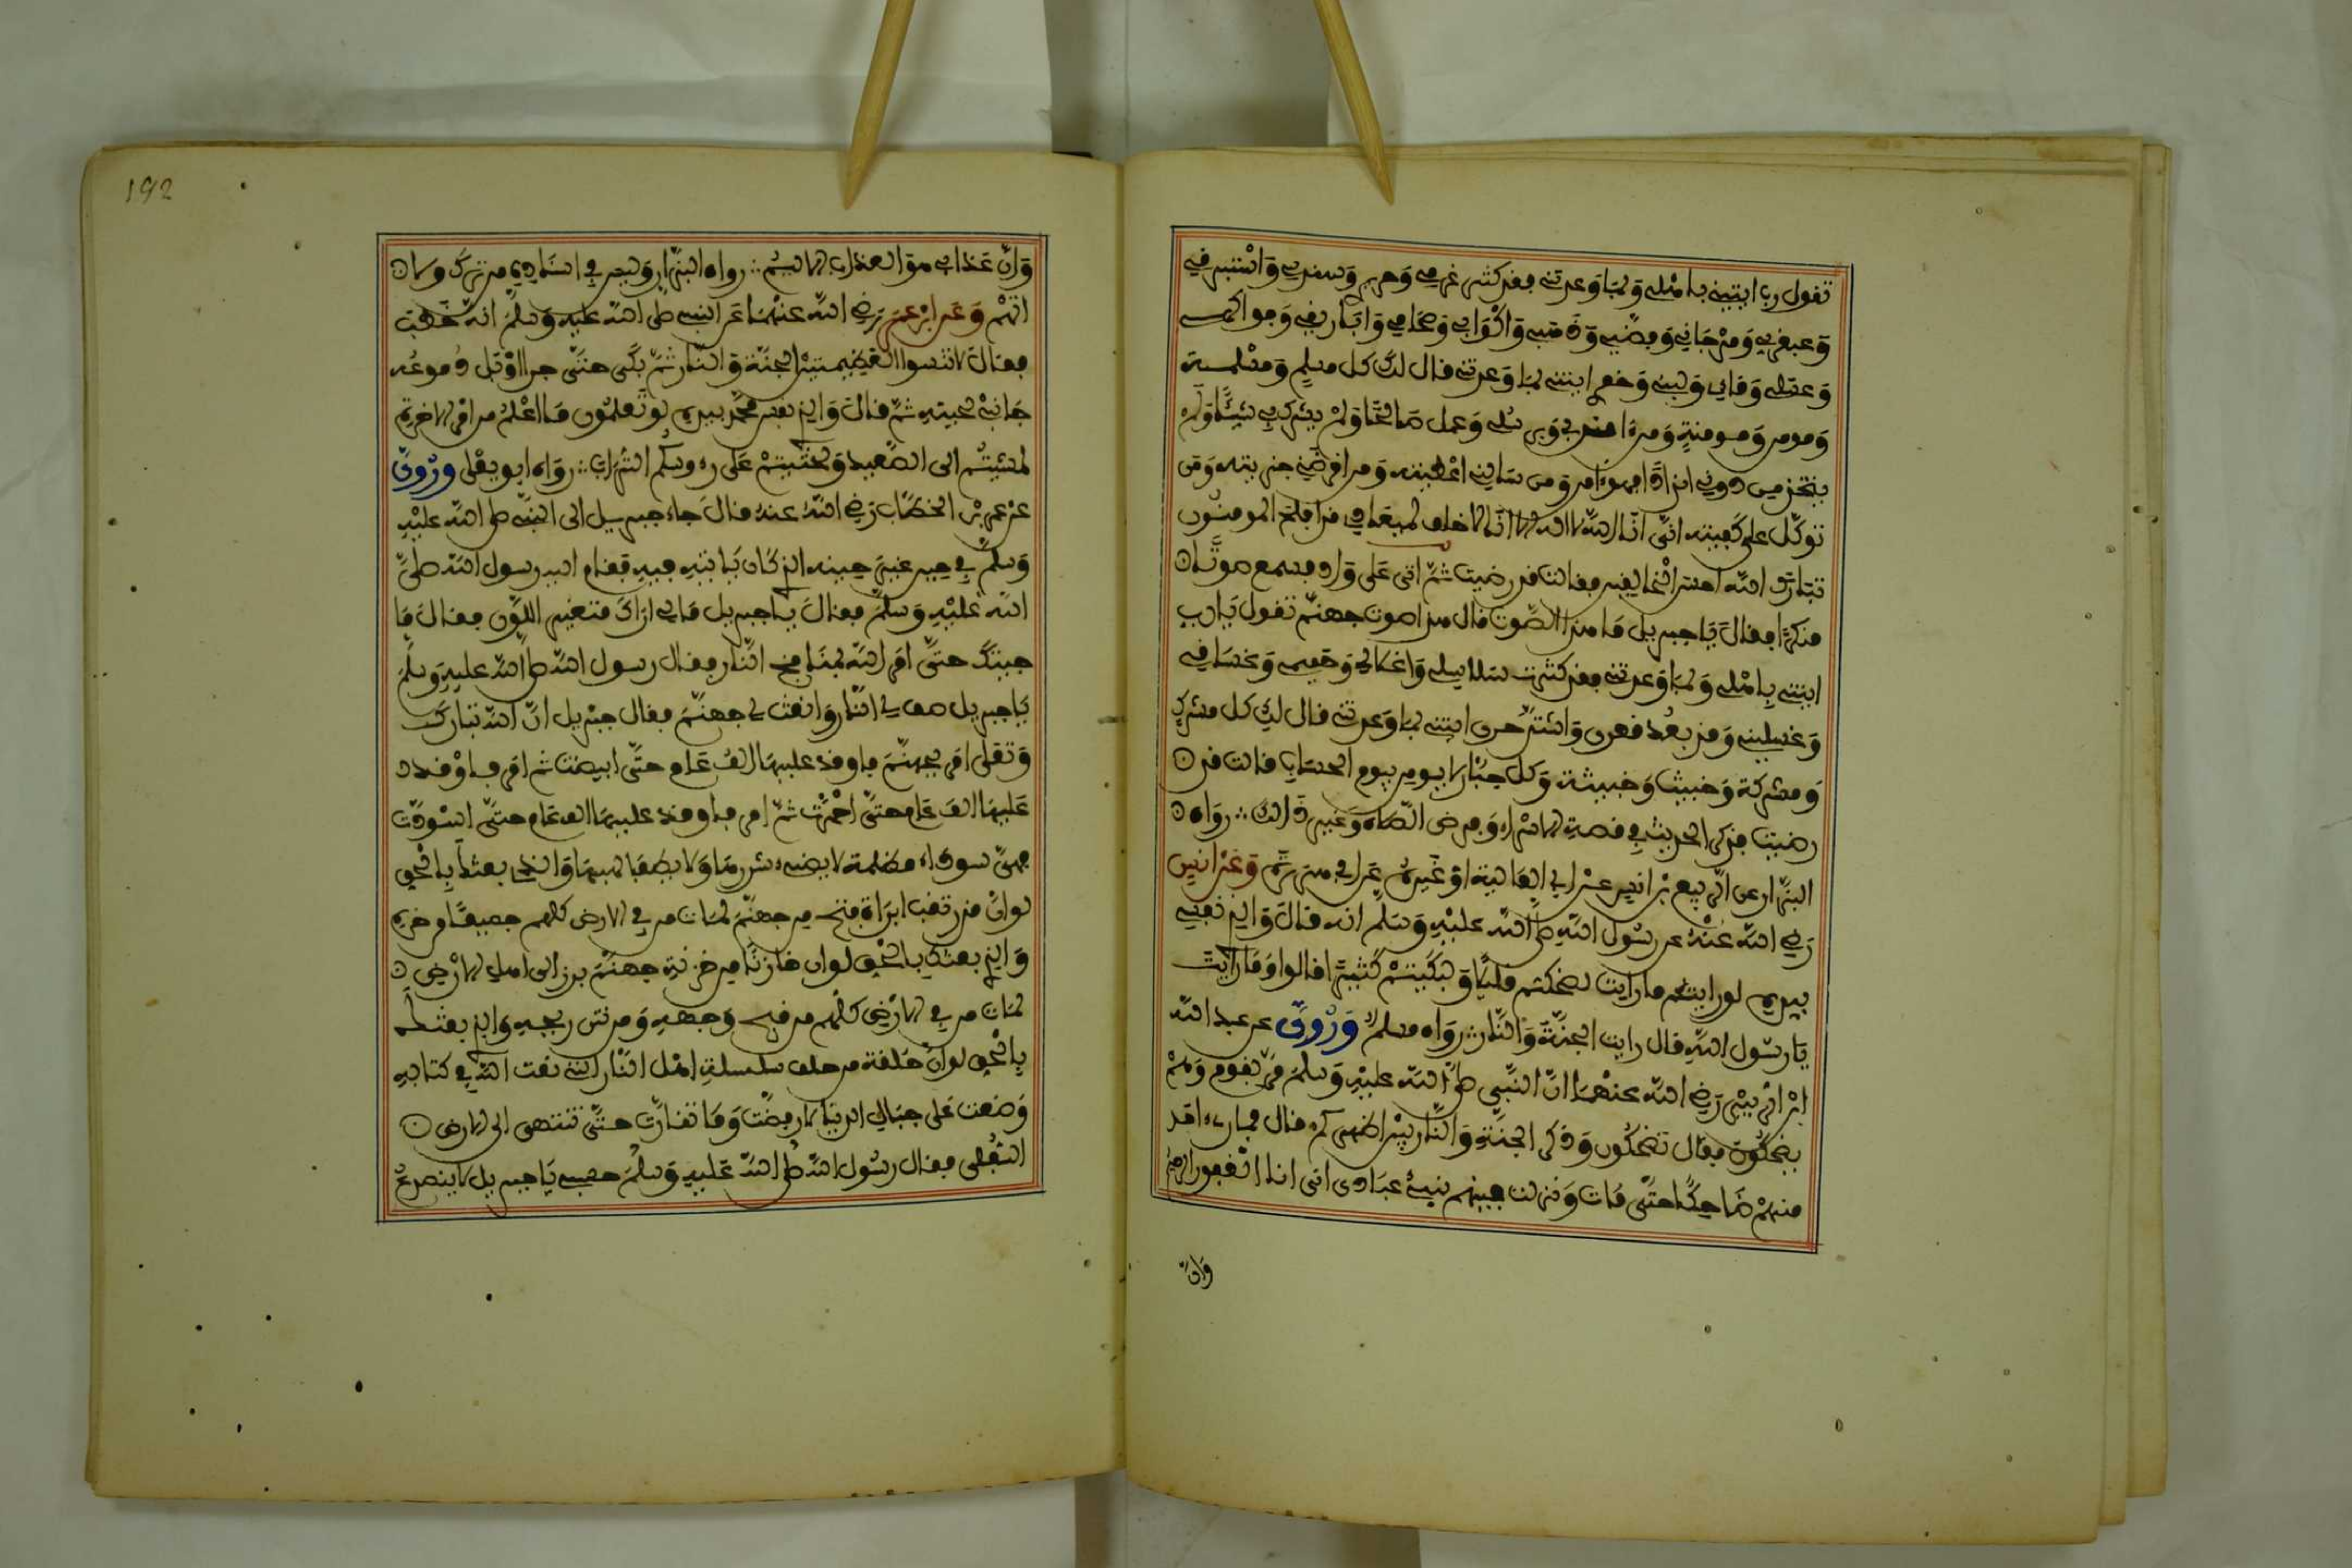 تقول رب ايتيني باهلي وبما وعدتني فقد كثر غرسي وحريري وسندسي واستبرقي
وعبقريي ومرجاني وفضتي وذهبي واكوابي وصحافي واباريقي وفواكهي
وعسلي وماءي ولبني وخمري ايتني بما وعدتني قال لك كل مسلم ومسلمة
ومومن ومومنة ومن امن بي وبرسلي وعمل صالحا ولم يشرك بي شيئا ولم
يتخذ من دوني اندادا فهو امن ومن سالني اعطيته ومن اقرضني جزيته ومن
توكل علي كفيته اني انا الله لا اله الا انا لا خلف لميعادي قد افلح المومنون
تبارك الله احسن الخالقين فقالت قد رضيت ثم اتى على واد فسمع صوتا
منكرا فقال يا جبريل ما هذا الصوت قال هذا صوت جهنم تقول يا رب
ايتني باهلي وبما وعدتني فقد كثرت سلاسلي واغلالي وحميمي وغساقي
وغسليني وقد بعد قعري واشتد حري ايتني بما وعدتني قال لك كل مشرك
ومشركة وخبيث وخبيثة وكل جبار لا يومن بيوم الحساب قالت قد
رضيت فذكر الحديث في قصة الاسراء وفرض الصلاة وغير ذالك ∴ رواه
البزار عن الربيع بن انس عن ابي العالية او غيره عن ابي هريرة وعن انس
رضي الله عنه عن رسول الله صلى الله عليه وسلم انه قال والذي نفسي
بيده لو رايتم ما رايت لضحكتم قليلا ولبكيتم كثيرا قالوا وما رايت
يا رسول الله قال رايت الجنة والنار ∴ رواه مسلم وروي عن عبد الله
ابن الزبير رضي الله عنهما ان النبي صلى الله عليه وسلم مر بقوم وهم
يضحكون فقال تضحكون وذكر الجنة والنار بين اظهركم قال فما رءي احد
منهم ضاحكا حتى مات ونزلت فيهم نبئ عبادي اني انا الغفور الرحيم
وان
192
وان عذابي هو العذاب الاليم ∴ رواه البزار وليس في اسناده من ترك ولا
اتهم وعن ابن عمر رضي الله عنهما عن النبي صلى الله عليه وسلم انه خطب
فقال لا تنسوا العظيمتين الجنة والنار ثم بكى حتى جرا او بل دموعه
جانبي لحيته ثم قال والذي نفس محمد بيده لو تعلمون ما اعلم من امر الاخرة
لمشيتم الى الصعيد ولحثيتم على رءوسكم التراب ∴ رواه ابو يعلى وروي
عن عمر بن الخطاب رضي الله عنه قال جاء جبريل الى النبي صلى الله عليه
وسلم في حين غير حينه الذي كان ياتيه فيه فقام اليه رسول الله صلى
الله عليه وسلم فقال يا جبريل مالي اراك متغير اللون فقال ما
جيتك حتى امر الله بمنافخ النار فقال رسول الله صلى الله عليه وسلم
يا جبريل صف لي النار وانعت لي جهنم فقال جبريل ان الله تبارك
وتعلى امر بجهنم فاوقد عليها الف عام حتى ابيضت ثم امر فاوقد
عليها الف عام حتى احمرت ثم امر فاوقد عليها الف عام حتى اسودت
فهي سوداء مظلمة لا يضيء شررها ولا يطفا لهبها والذي بعثك بالحق
لو ان قدر ثقب ابرة فتح من جهنم لمات من في الارض كلهم جميعا من حره
والذي بعثك بالحق لو ان خازنا من خزنة جهنم برز الى اهل الارض
لمات من في الارض كلهم من قبح وجهه ومن نتن ريحه والذي بعثك
بالحق لو ان حلقة من حلق سلسلة اهل النار التي نعت الله في كتابه
وضعت على جبال الدنيا لارفضت وما تقارت حتى تنتهي الى الارض
السفلى فقال رسول الله صلى الله عليه وسلم حسبي يا جبريل لا ينصدع